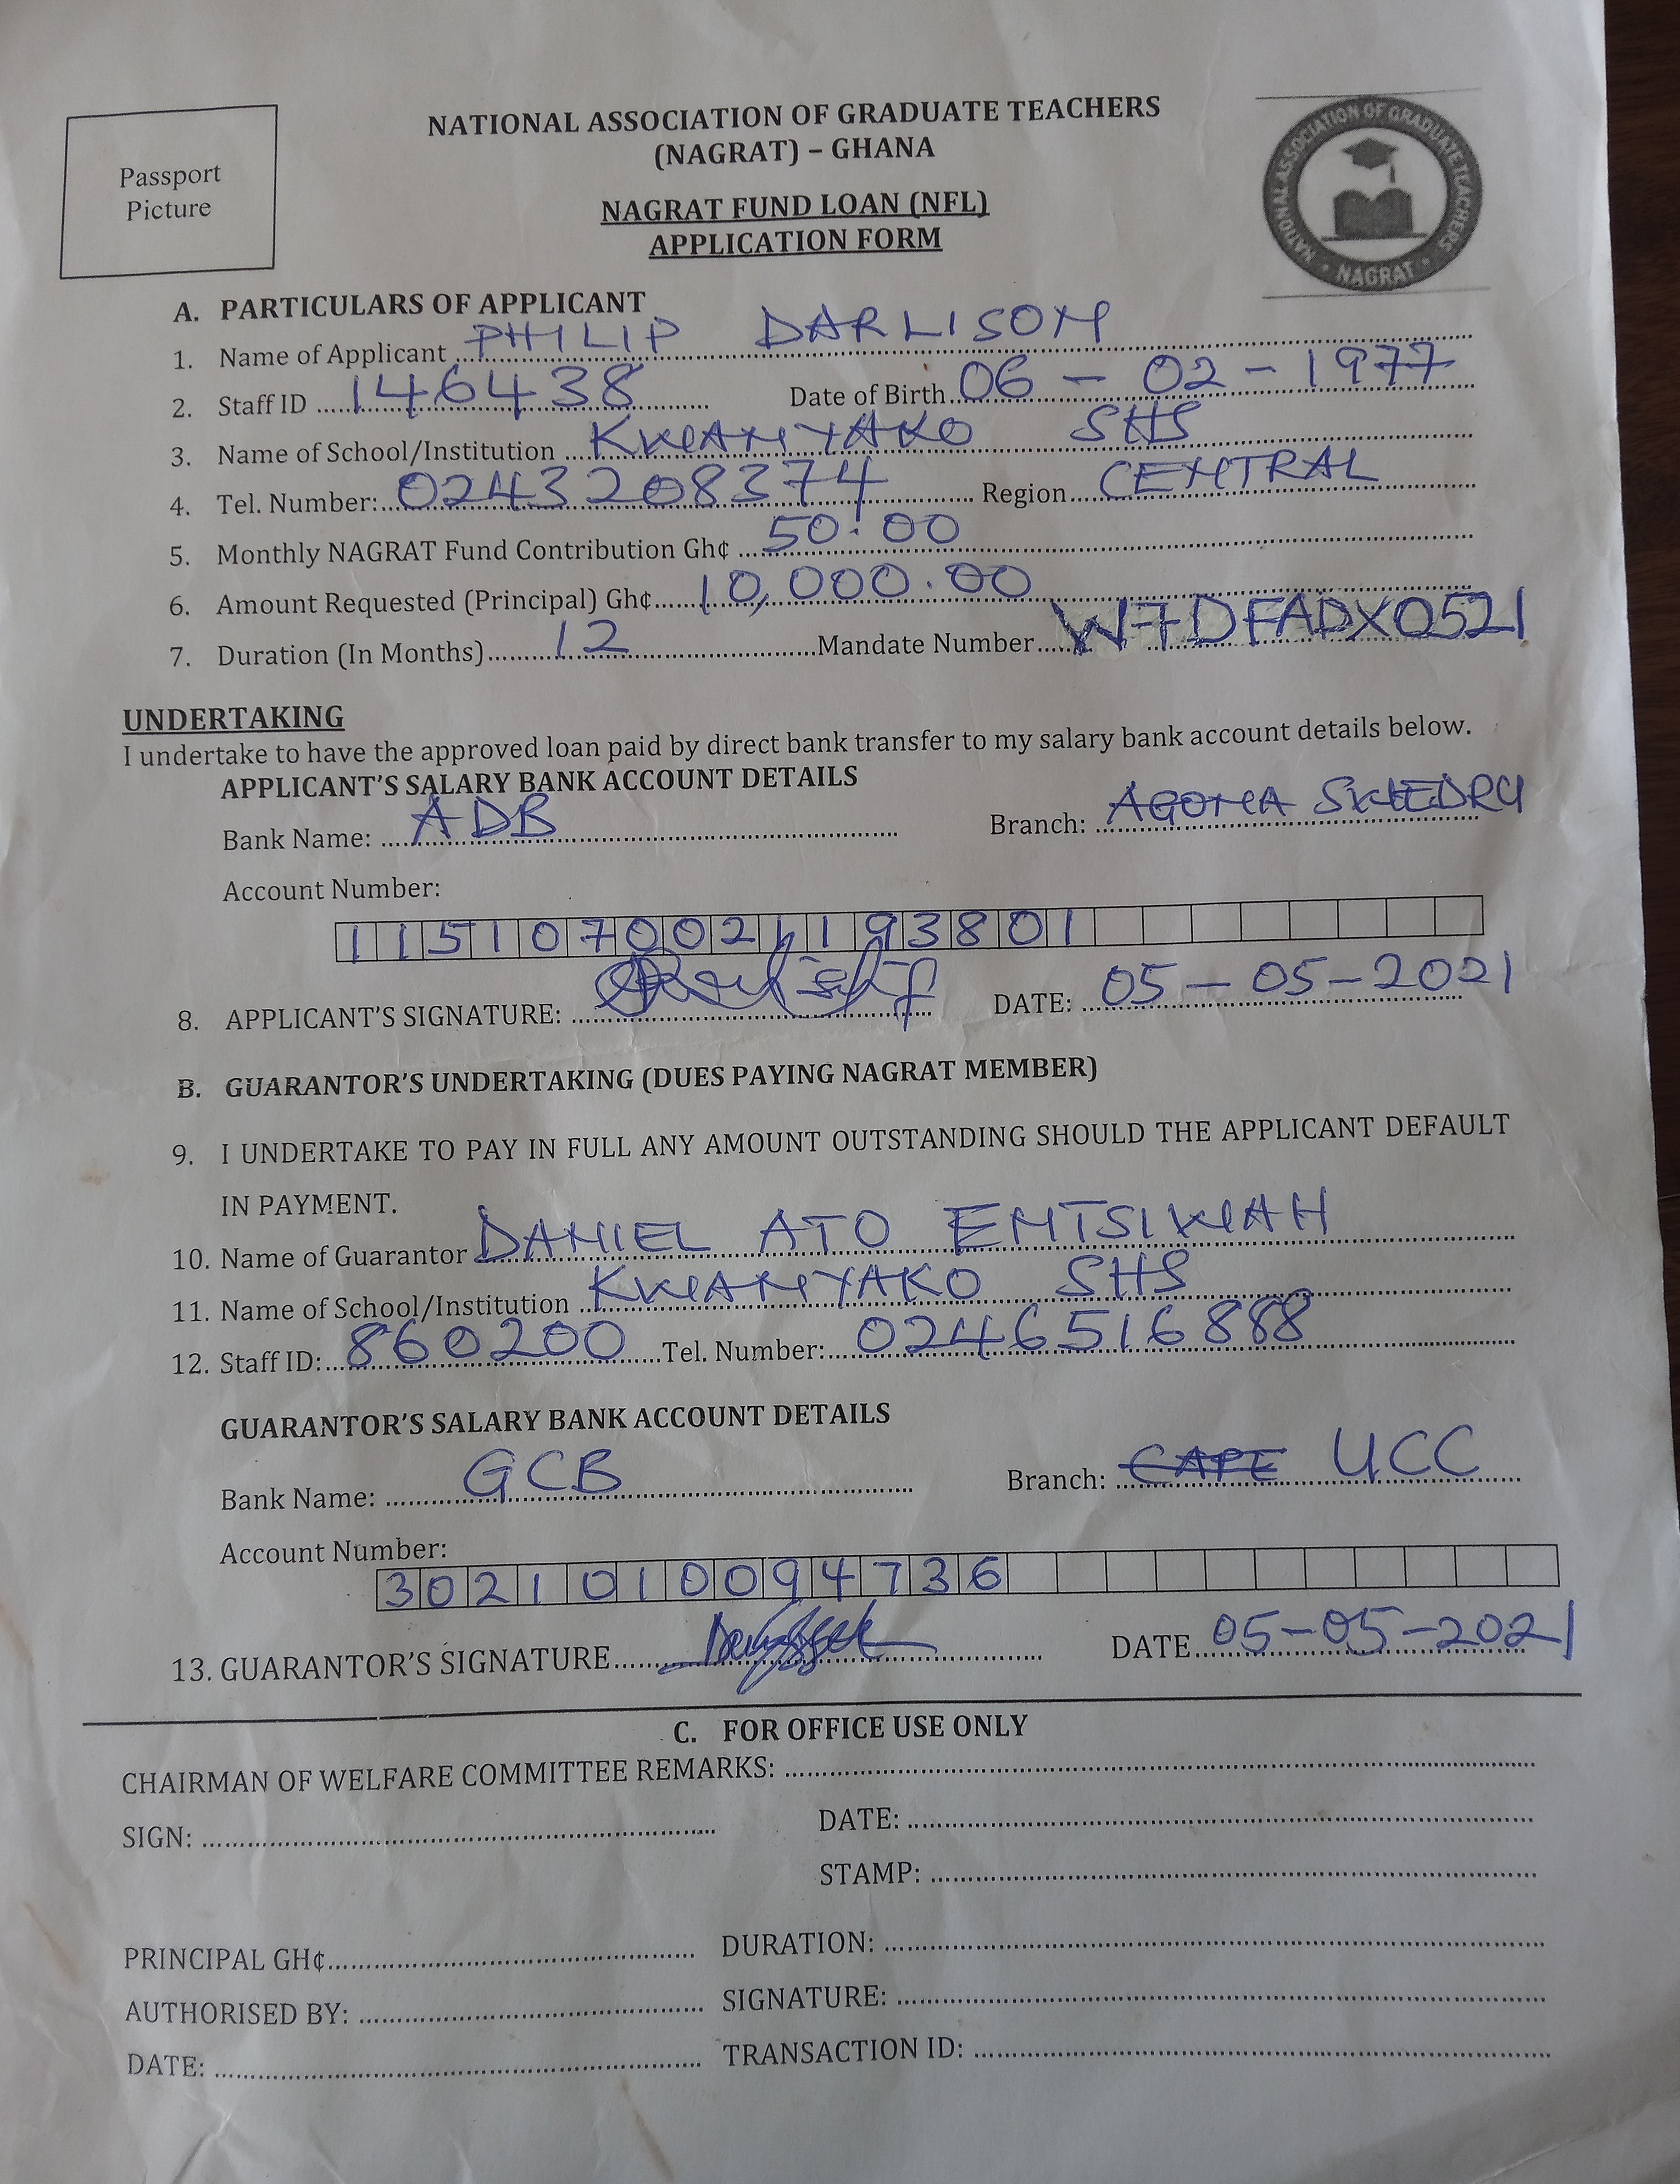 Passport
Picture
NATIONAL ASSOCIATION OF GRADUATE TEACHERS
(NAGRAT) – GHANA
NAGRAT FUND LOAN (NFL)
APPLICATION FORM
NATIONAL ASSOCIATION OF GRADUATE TEACHERS
NAGRAT
A. PARTICULARS OF APPLICANT
1. Name of Applicant PHILIP DARLISON
2. Staff ID 146438 Date of Birth 06 - 02 - 1977
3. Name of School/Institution KWANYAKO SHS
4. Tel. Number: 0243208374 Region CENTRAL
5. Monthly NAGRAT Fund Contribution Gh¢ 50.00
6. Amount Requested (Principal) Gh¢ 10,000.00
7. Duration (In Months) 12 Mandate Number W7DFADX0521
UNDERTAKING
I undertake to have the approved loan paid by direct bank transfer to my salary bank account details below.
APPLICANT'S SALARY BANK ACCOUNT DETAILS
Bank Name: ADB Branch: AGONA SWEDRU
Account Number:
1151070021193801
8. APPLICANT'S SIGNATURE: DATE: 05 - 05 - 2021
B. GUARANTOR'S UNDERTAKING (DUES PAYING NAGRAT MEMBER)
9. I UNDERTAKE TO PAY IN FULL ANY AMOUNT OUTSTANDING SHOULD THE APPLICANT DEFAULT
IN PAYMENT.
10. Name of Guarantor DANIEL ATO ENTSIWAH
11. Name of School/Institution KWANYAKO SHS
12. Staff ID: 860200 Tel. Number: 0246516888
GUARANTOR'S SALARY BANK ACCOUNT DETAILS
Bank Name: GCB Branch: CAPE UCC
Account Number:
3021010094736
13. GUARANTOR'S SIGNATURE DATE 05-05-2021
C. FOR OFFICE USE ONLY
CHAIRMAN OF WELFARE COMMITTEE REMARKS:
SIGN: DATE:
STAMP:
PRINCIPAL GH¢ DURATION:
AUTHORISED BY: SIGNATURE:
DATE: TRANSACTION ID: